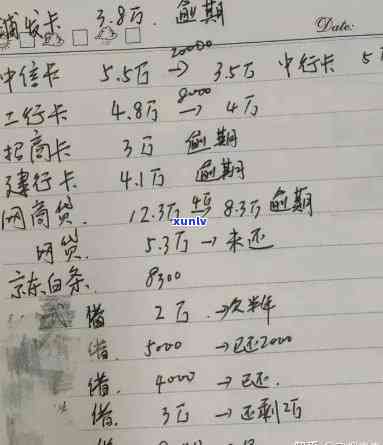 浦发卡 3.8万 逾期
Date:
中信卡 5.5万 20000→ 3.5万 中行卡 5
工行卡 4.8万 8000→ 4万
招商卡 3万 逾期
建行卡 4.1万 逾期
网商贷. 12.3万 4万→ 8.3万 逾期
xunlv
网贷. 5.3万 →未还
京东白条. 8300
借 2万 →欠半年
借. 5000 →已还2000
借. 4000 →已还.
借. 3万 →还剩2万